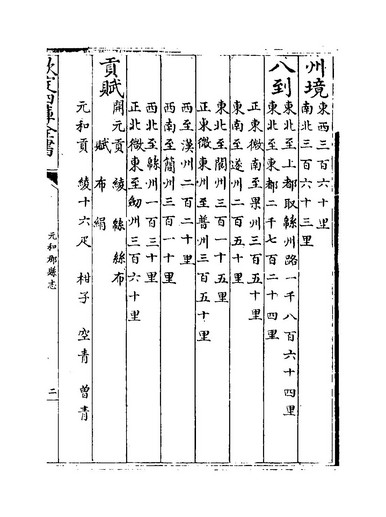 州境
東西三百六十里
南北三百六十三里
八到
東北至上都取緜州路一千八百六十四里
東北至東都二千七百二十四里
正東微南至果州三百五十里
東南至遂州二百五十里
東北至閬州三百一十五里
正東微東州至普州三百五十里
西至漢州二百二十里
西南至簡州三百一十里
西北至緜州一百三十里
正北微東至劒州三百六十里
貢賦
開元貢 綾 絲 絲布
賦 布 絹
元和貢 綾十六疋 柑子 空青 曾青
欽定四庫全書
元和郡縣志
二